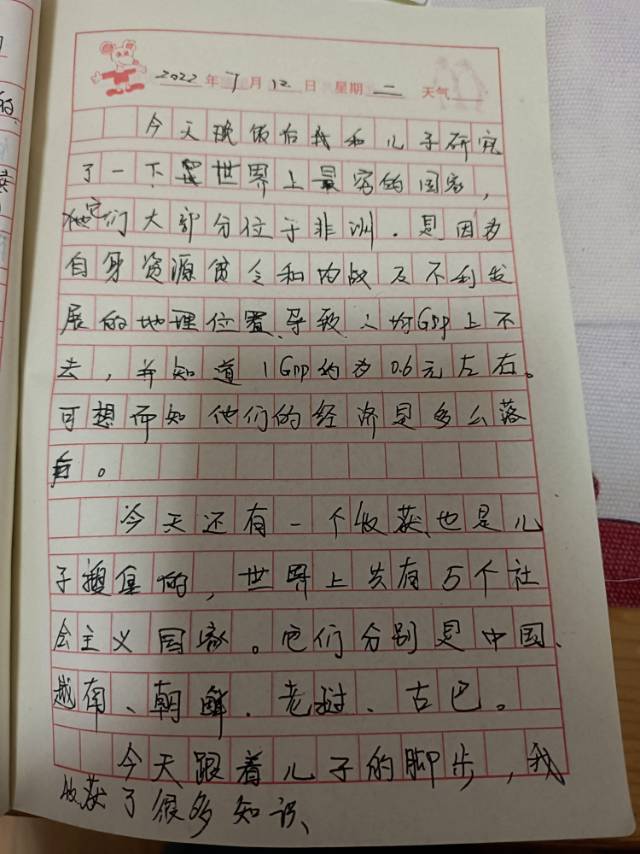 2022年7月12日 星期二 天气
今天晚饭后我和儿子研究
了一下世界上最穷的国家，
它们大部分位于非洲．是因为
自身资源贫乏和内战及不利发
展的地理位置导致人均Gdp上不
去，并知道1Gnp约为0.6元左右。
可想而知他们的经济是多么落
后。
今天还有一个收获也是儿
子搜集的，世界上共有5个社
会主义国家。它们分别是中国、
越南、朝鲜．老挝、古巴。
今天跟着儿子的脚步，我
收获了很多知识、